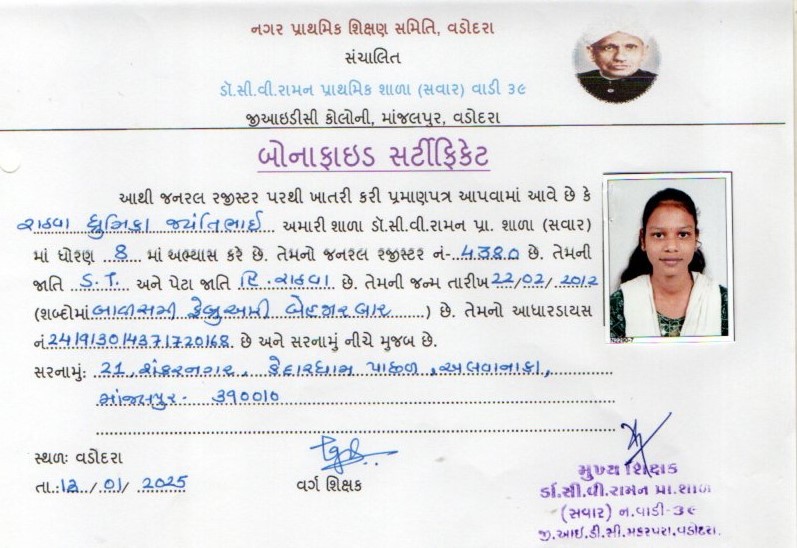 નગર પ્રાથમિક શિક્ષણ સમિતિ, વડોદરા
સંચાલિત
ડૉ.સી.વી.રામન પ્રાથમિક શાળા (સવાર) વાડી ૩૯
જીઆઇડીસી કોલોની, માંજલપુર, વડોદરા
બોનાફાઇડ સર્ટીફિકેટ
આથી જનરલ રજીસ્ટર પરથી ખાતરી કરી પ્રમાણપત્ર આપવામાં આવે છે કે
રાઠવા ધ્રુમિકા જયંતિભાઈ અમારી શાળા ડૉ.સી.વી.રામન પ્રા. શાળા (સવાર)
માં ધોરણ 8 માં અભ્યાસ કરે છે. તેમનો જનરલ રજીસ્ટર નં- 4380 છે. તેમની
જાતિ S.T. અને પેટા જાતિ હિ. રાઠવા છે. તેમની જન્મ તારીખ 22/02/2012
(શબ્દોમાં બાવીસમી ફેબ્રુઆરી બેહજાર બાર) છે. તેમનો આધારડાયસ
નં 241913014371720168 છે અને સરનામું નીચે મુજબ છે.
સરનામું: 21, શંકરનગર, કેદારધામ પાછળ, અલવાનાકા,
માંજલપુર - ૩૯૦૦૧૦
સ્થળઃ વડોદરા
તા.: /01/2025
વર્ગ શિક્ષક
મુખ્ય શિક્ષક
ર્ડા.સી.વી.રામન પ્રા.શાળા
(સવાર) ન.વાડી-૩૯
જી.આઈ.ડી.સી.મકરપરા,વડોદરા.